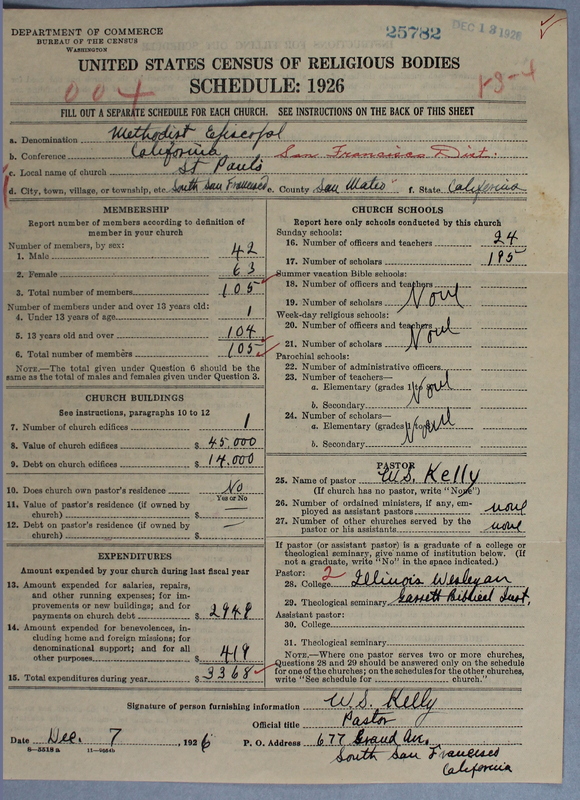 DEPARTMENT OF COMMERCE
BUREAU OF THE CENSUS
WASHINGTON
25782
DEC 13 1926
UNITED STATES CENSUS OF RELIGIOUS BODIES
SCHEDULE: 1926
004
1-8-4
FILL OUT A SEPARATE SCHEDULE FOR EACH CHURCH. SEE INSTRUCTIONS ON THE BACK OF THIS SHEET
a. Denomination Methodist Episcopal
b. Conference California San Francisco Dist.
c. Local name of church St Pauls
d. City, town, village, or township, etc. South San Francisco e. County San Mateo f. State California
MEMBERSHIP
Report number of members according to definition of
member in your church
Number of members, by sex:
1. Male 42
2. Female 63
3. Total number of members 105
Number of members under and over 13 years old:
4. Under 13 years of age 1
5. 13 years old and over 104
6. Total number of members 105
NOTE.—The total given under Question 6 should be
same as the total of males and females given under Question 3.
CHURCH BUILDINGS
See instructions, paragraphs 10 to 12
7. Number of church edifices 1
8. Value of church edifices $ 45,000
9. Debt on church edifices $ 14,000
10. Does church own pastor's residence No
Yes or No
11. Value of pastor's residence (if owned by
church) $ —
12. Debt on pastor's residence (if owned by
church) $ —
EXPENDITURES
Amount expended by your church during last fiscal year
13. Amount expended for salaries, repairs,
and other running expenses; for im-
provements or new buildings; and for
payments on church debt $ 2949
14. Amount expended for benevolences, in-
cluding home and foreign missions; for
denominational support; and for all
other purposes $ 419
15. Total expenditures during year $ 3368
CHURCH SCHOOLS
Report here only schools conducted by this church
Sunday schools:
16. Number of officers and teachers 24
17. Number of scholars 195
Summer vacation Bible schools:
18. Number of officers and teachers
19. Number of scholars None
Week-day religious schools:
20. Number of officers and teachers
21. Number of scholars None
Parochial schools:
22. Number of administrative officers
23. Number of teachers—
a. Elementary (grades 1 to 8) None
b. Secondary
24. Number of scholars—
a. Elementary (grades 1 to 8) None
b. Secondary
PASTOR
25. Name of pastor W.S. Kelly
(If church has no pastor, write "None")
26. Number of ordained ministers, if any, em-
ployed as assistant pastors none
27. Number of other churches served by the
pastor or his assistants none
If pastor (or assistant pastor) is a graduate of a college or
theological seminary, give name of institution below. (If
not a graduate, write "No" in the space indicated.)
Pastor:
28. College 2 Illinois Wesleyan
29. Theological seminary Garrett Biblical Inst.
Assistant pastor:
30. College
31. Theological seminary
NOTE.—Where one pastor serves two or more churches,
Questions 28 and 29 should be answered only on the schedule
for one of the churches; on the schedules for the other churches,
write "See schedule for church."
Signature of person furnishing information W.S. Kelly
Official title Pastor
Date Dec. 7, 1926 P. O. Address 677 Grand Av.
South San Francisco
California
8—5518 a